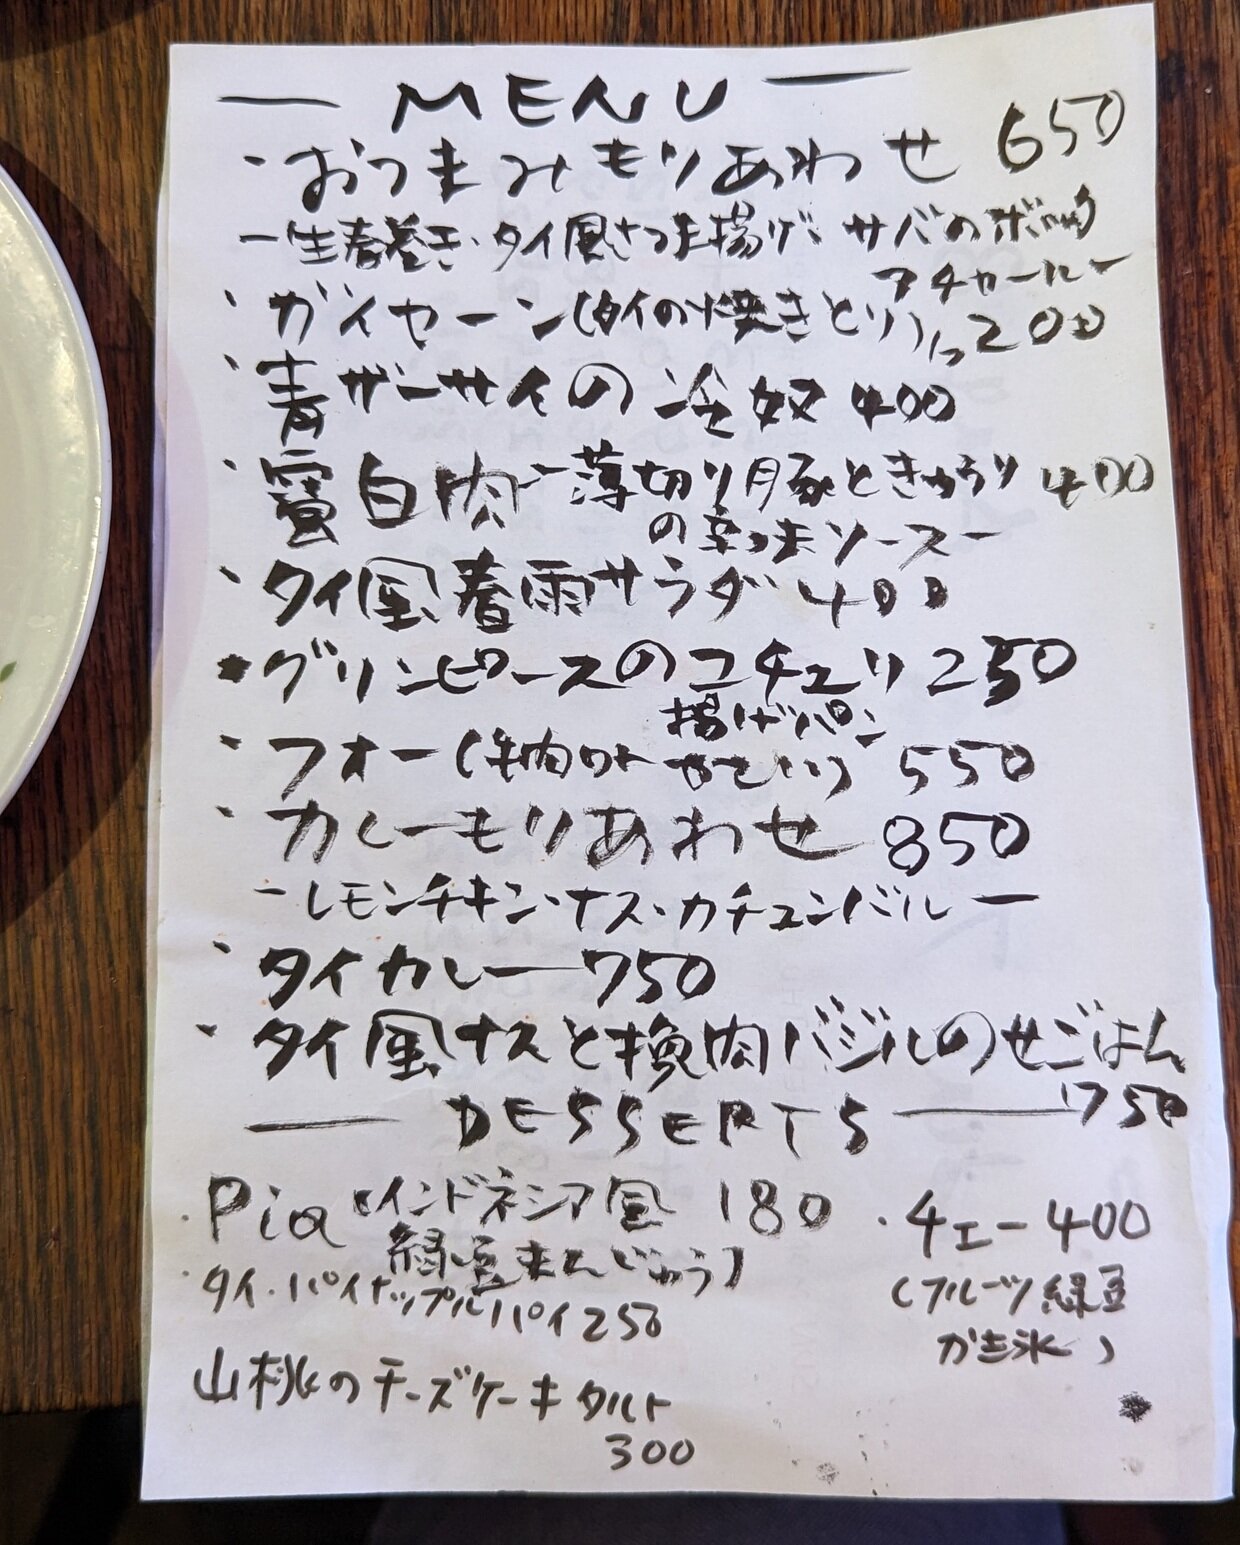 — MENU —
・おつまみもりあわせ 650
－生春巻き・タイ風さつま揚げ、サバの
アチャールー
・ガイヤーン(タイの焼きとり)1コ200
・青ザーサイの冷奴 400
・雲白肉－薄切り豚ときゅうり 400
の辛味ソース－
・タイ風春雨サラダ 400
・グリンピースのコチュリ 250
揚げパン
・フォー(牛肉 or やさい) 550
・カレーもりあわせ 850
－レモンチキン・ナス・カチュンバル－
・タイカレー 750
・タイ風ナスと挽肉バジルのせごはん
750
— DESSERTS —
・Pia (インドネシア風 180
緑豆まんじゅう)
・タイ・パイナップルパイ 250
山桃のチーズケーキタルト
300
・チェー 400
(フルーツ緑豆
かき氷)